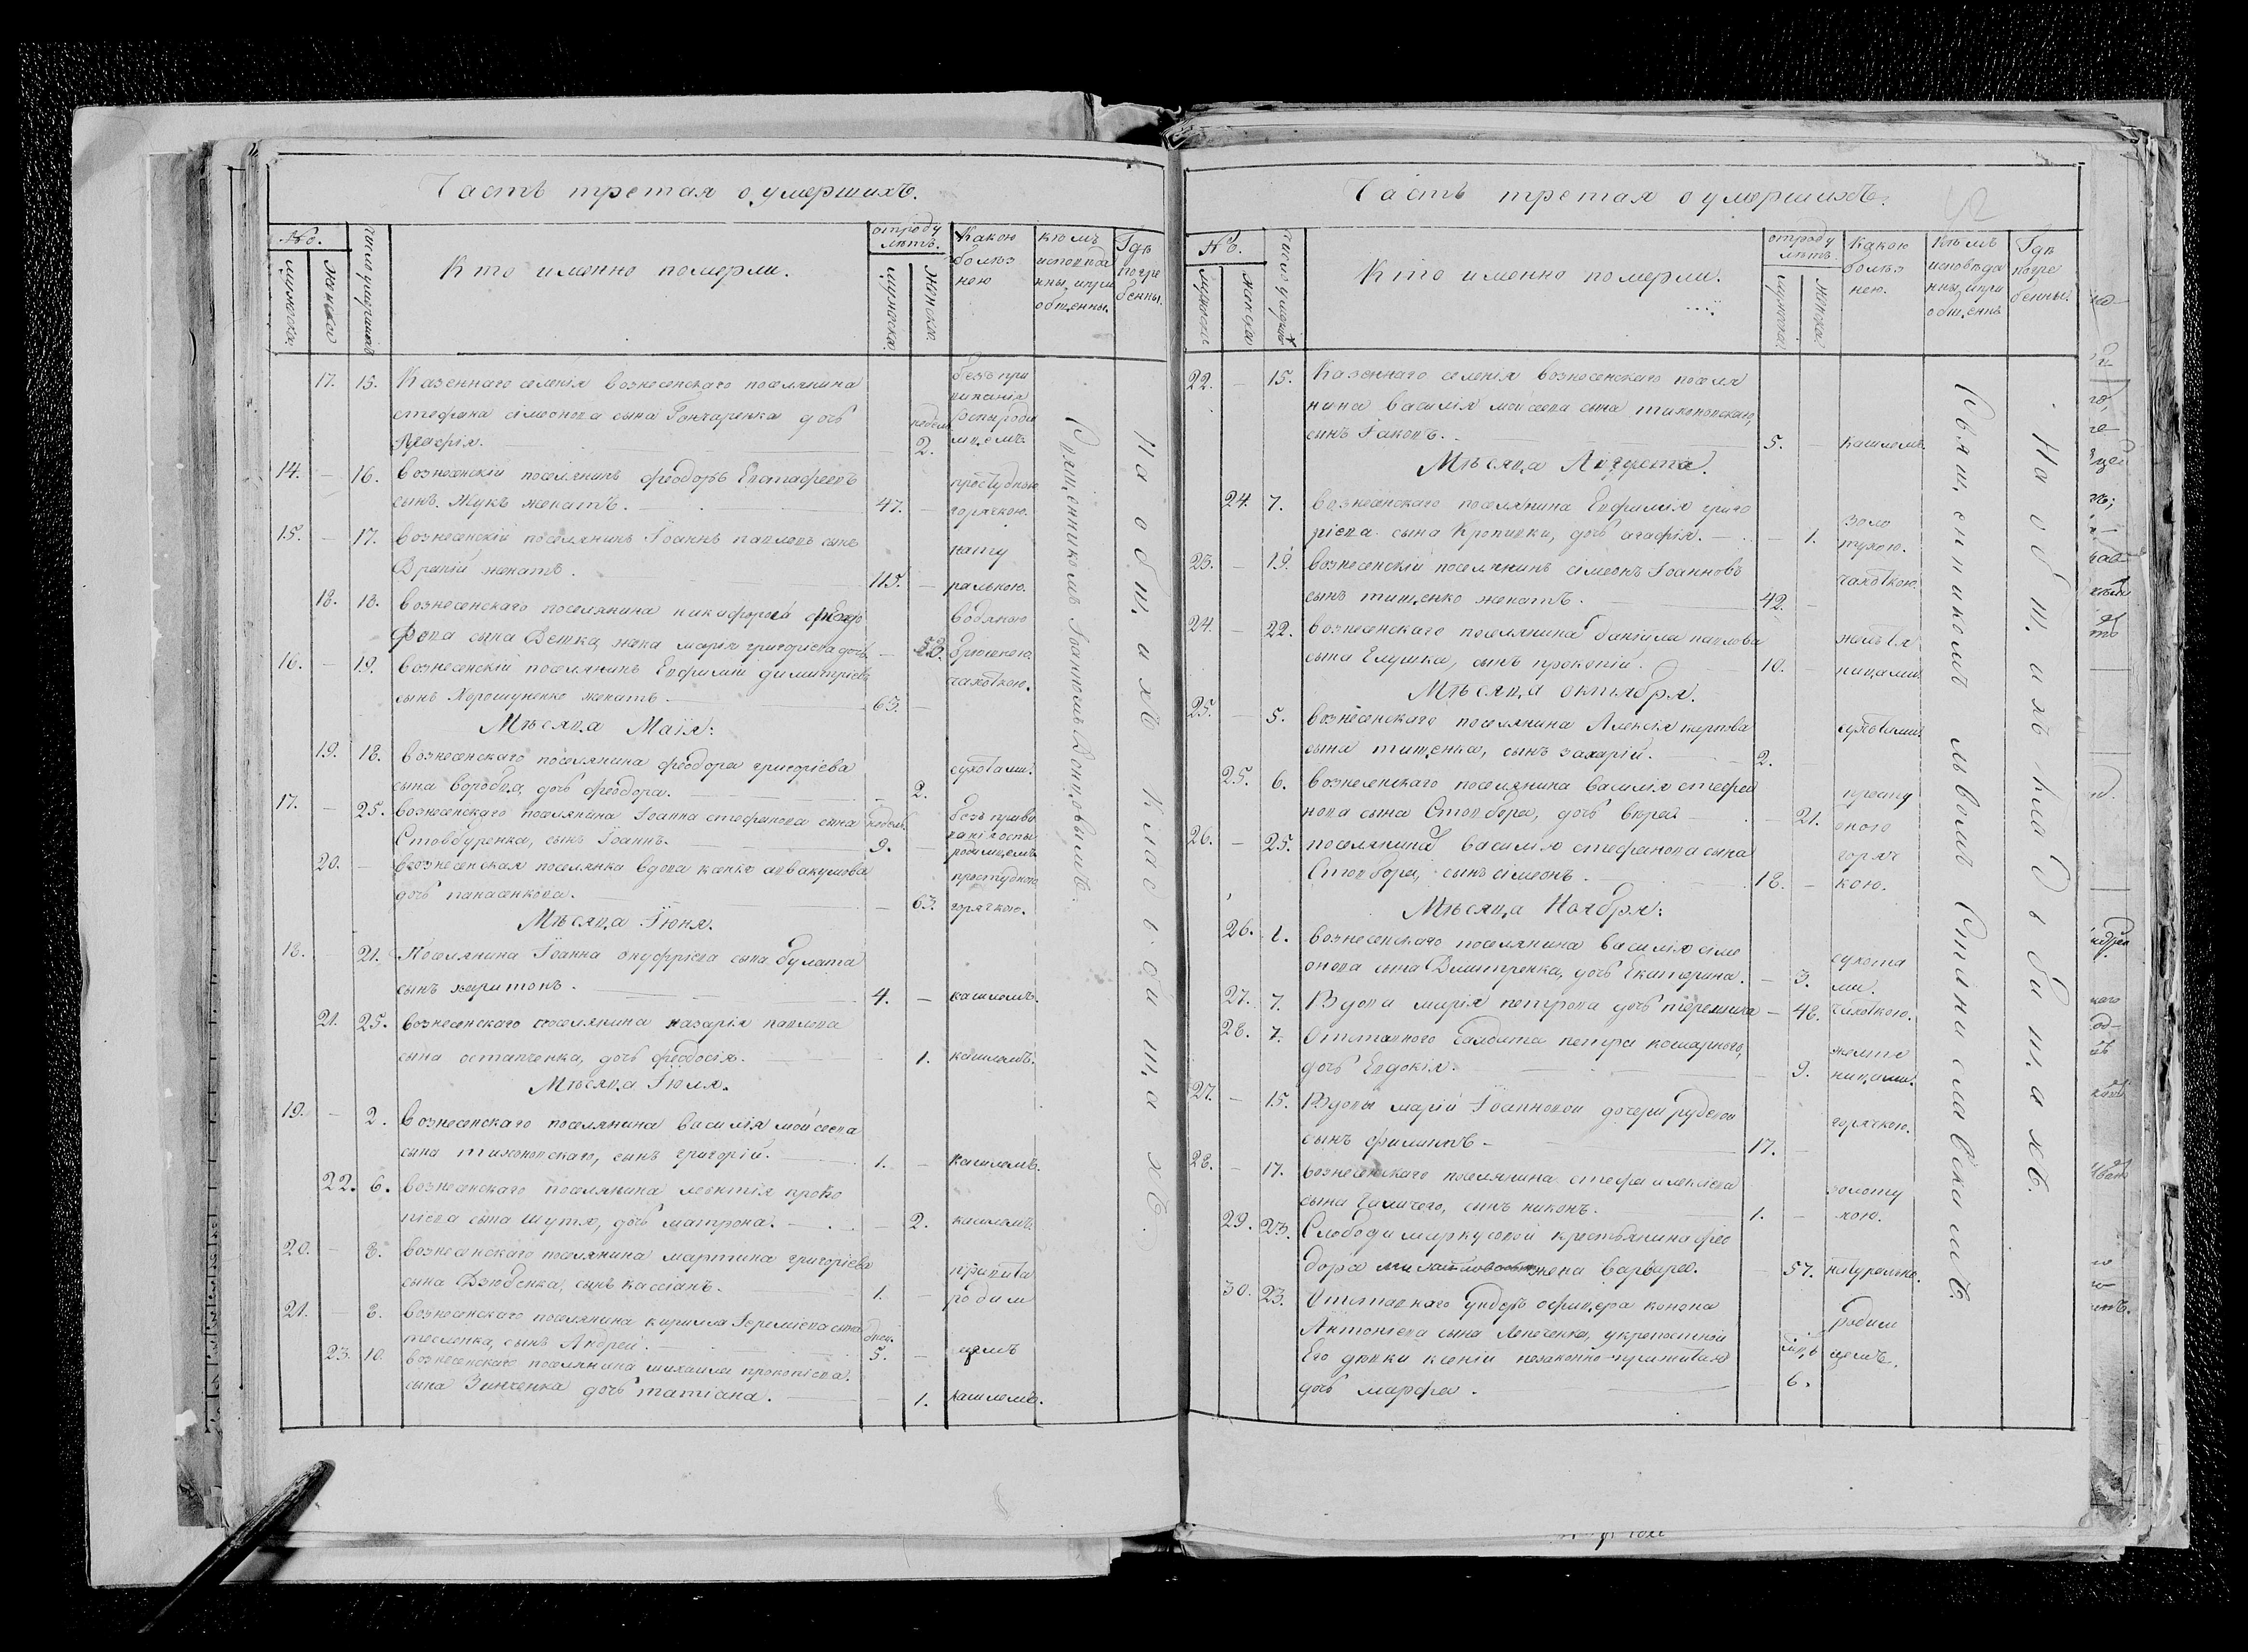 Часть третая о умершихъ.
№.
мужеска.
женска
число умершихъ
Кто именно померли.
отроду
лѣтъ.
мужеска.
женска.
Какою
болѣз
нею
кѣмъ
исповѣда
нны, и при
общенны.
Гдѣ
погре
бенны.
17. 15. Казеннаго селенія вознесенскаго поселянина
стефана сімеонова сына Гончаренка дочь
Агафія. 2.
14. – 16. вознесенскій поселянинъ феодоръ Евстафеевъ
сынъ Жукъ женатъ. 47. – простудною
горячкою.
15. – 17. вознесенскій поселянинъ Іоаннъ павловъ сынъ
женатъ. 115. – нату
ральною.
18. 18. вознесенскаго поселянина никифора
сына Дешка, жена марія григоріева дочь – водяною
16. – 19. вознесенскій поселянинъ Евфимій димитріевъ
сынъ Хорошуненко женатъ. 63. чахоткою.
Мѣсяца Маія:
19. 18. вознесенскаго поселянина феодора григоріева
сына воробца, дочь феодора. – 2. сухотами.
17. – 25. вознесенскаго поселянина Іоанна стефанова сына
Стовбуренка, сынъ Іоаннъ. 9. –
родимцемъ
20. – вознесенская поселянка вдова ксенія аввакумова
дочь панасенкова. – 63. простудною
горячкою.
Мѣсяца Іюня.
18. 21. Поселянина Іоанна онуфріева сына булата
сынъ харитонъ. 4. – кашлемъ.
21. 25. вознесенскаго поселянина назарія павлова
сына остапченка, дочь феодосія. – 1. кашлемъ.
Мѣсяца Іюля.
19. – 2. вознесенскаго поселянина василія мойсеева
сына тихоновскаго, сынъ григорій. 1. – кашлемъ.
22. 6. вознесенскаго поселянина леонтія проко
піева сына шутя, дочь матрона. – 2. кашлемъ
20. – 8. вознесенскаго поселянина мартина григоріева
сына Дзюбенка, сынъ кассіанъ. 1. –
21. – 8. вознесенскаго поселянина кирилла Іереміева сына
тесленка, сынъ Андрей. 5. – родим
цемъ
23. 10. вознесенскаго поселянина михаила прокопіева
сына Зинченка дочь татіана. – 1. кашлемъ.
Священникомъ Іоанномъ Донцовымъ.
На общихъ кладбищахъ.
Часть третая о умершихъ.
№.
мужеска
женска
число умершихъ
Кто именно померли.
отроду
лѣтъ.
мужеска
женска
Какою
болѣз
нею.
Кѣмъ
исповѣда
нны, и при
общенны
Гдѣ
погре
бенны.
22. – 15. Казеннаго селенія вознесенскаго поселя
нина василія мойсеева сына тихоновскаго,
сынъ Іаковъ. 5. – кашлемъ.
Мѣсяца Августа.
24. 7. вознесенскаго поселянина Евфимія григо
ріева сына Кропивки, дочь агафія. – 1. золо
тухою.
23. – 19. вознесенскій поселянинъ сімеонъ Іоанновъ
сынъ тищенко женатъ. 42. – чахоткою.
24. – 22. вознесенскаго поселянина даніила павлова
сына Глушка, сынъ прокопій. 10. –
Мѣсяца октября.
25. – 5. вознесенскаго поселянина Алексія карпова
сына тищенка, сынъ захарій. 2. сухотами.
25. 6. вознесенскаго поселянина василія стефа
нова сына Стовбора, дочь вѣра – 21. просту
дною
26. – 25. поселянина василія стефанова сына
Стовбора, сынъ сімеонъ. 18. – горяч
кою.
Мѣсяца Ноября:
26. 1. вознесенскаго поселянина василія симе
онова сына Дмитренка, дочь Екатерина. – 3. сухота
ми.
27. 7. Вдова марія петрова дочь – 48. чахоткою.
28. 7. Отставного салдата петра комарного,
дочь Евдокія. – 9.
27. – 15. Вдовы маріи Іоанновой дочери рудевой
сынъ филиппъ – 17. горячкою.
28. – 17. вознесенскаго поселянина стефа алексіева
сына Галичего, сынъ никонъ. 1. – золоту
хою.
29. 23. Слободи маркусовой крестьянина фео
дора жена варвара. 57. натуральною.
30. 23. Отставнаго ундеръ офицера конона
Антоніева сына Левченка, у крепостной
Его дѣвки ксеніи незаконно-прижитая
дочь марфа. 6. родим
цемъ.
Священникомъ львомъ Станиславскимъ.
На общихъ кладбищахъ.